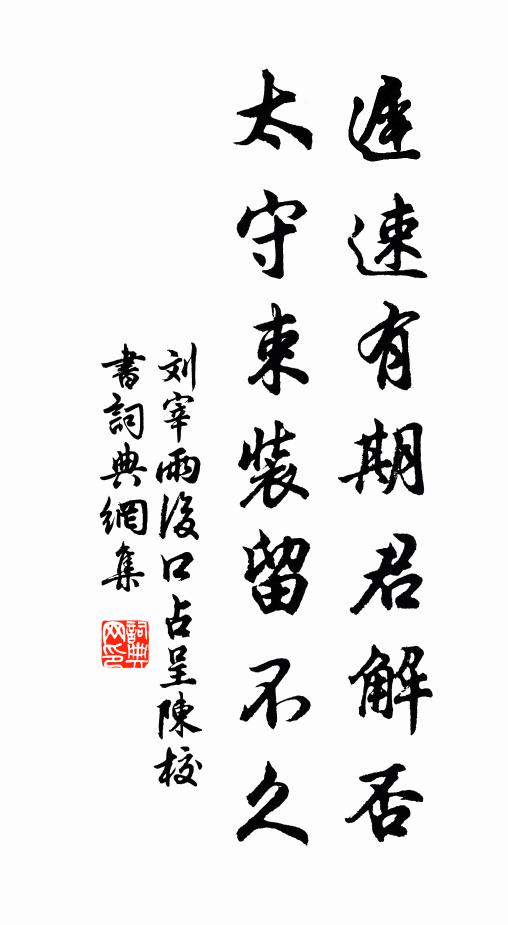 遲速有期君解否
太守束裝留不久
刘宰雨後口占呈陳校
書詞典網集
詞典网印